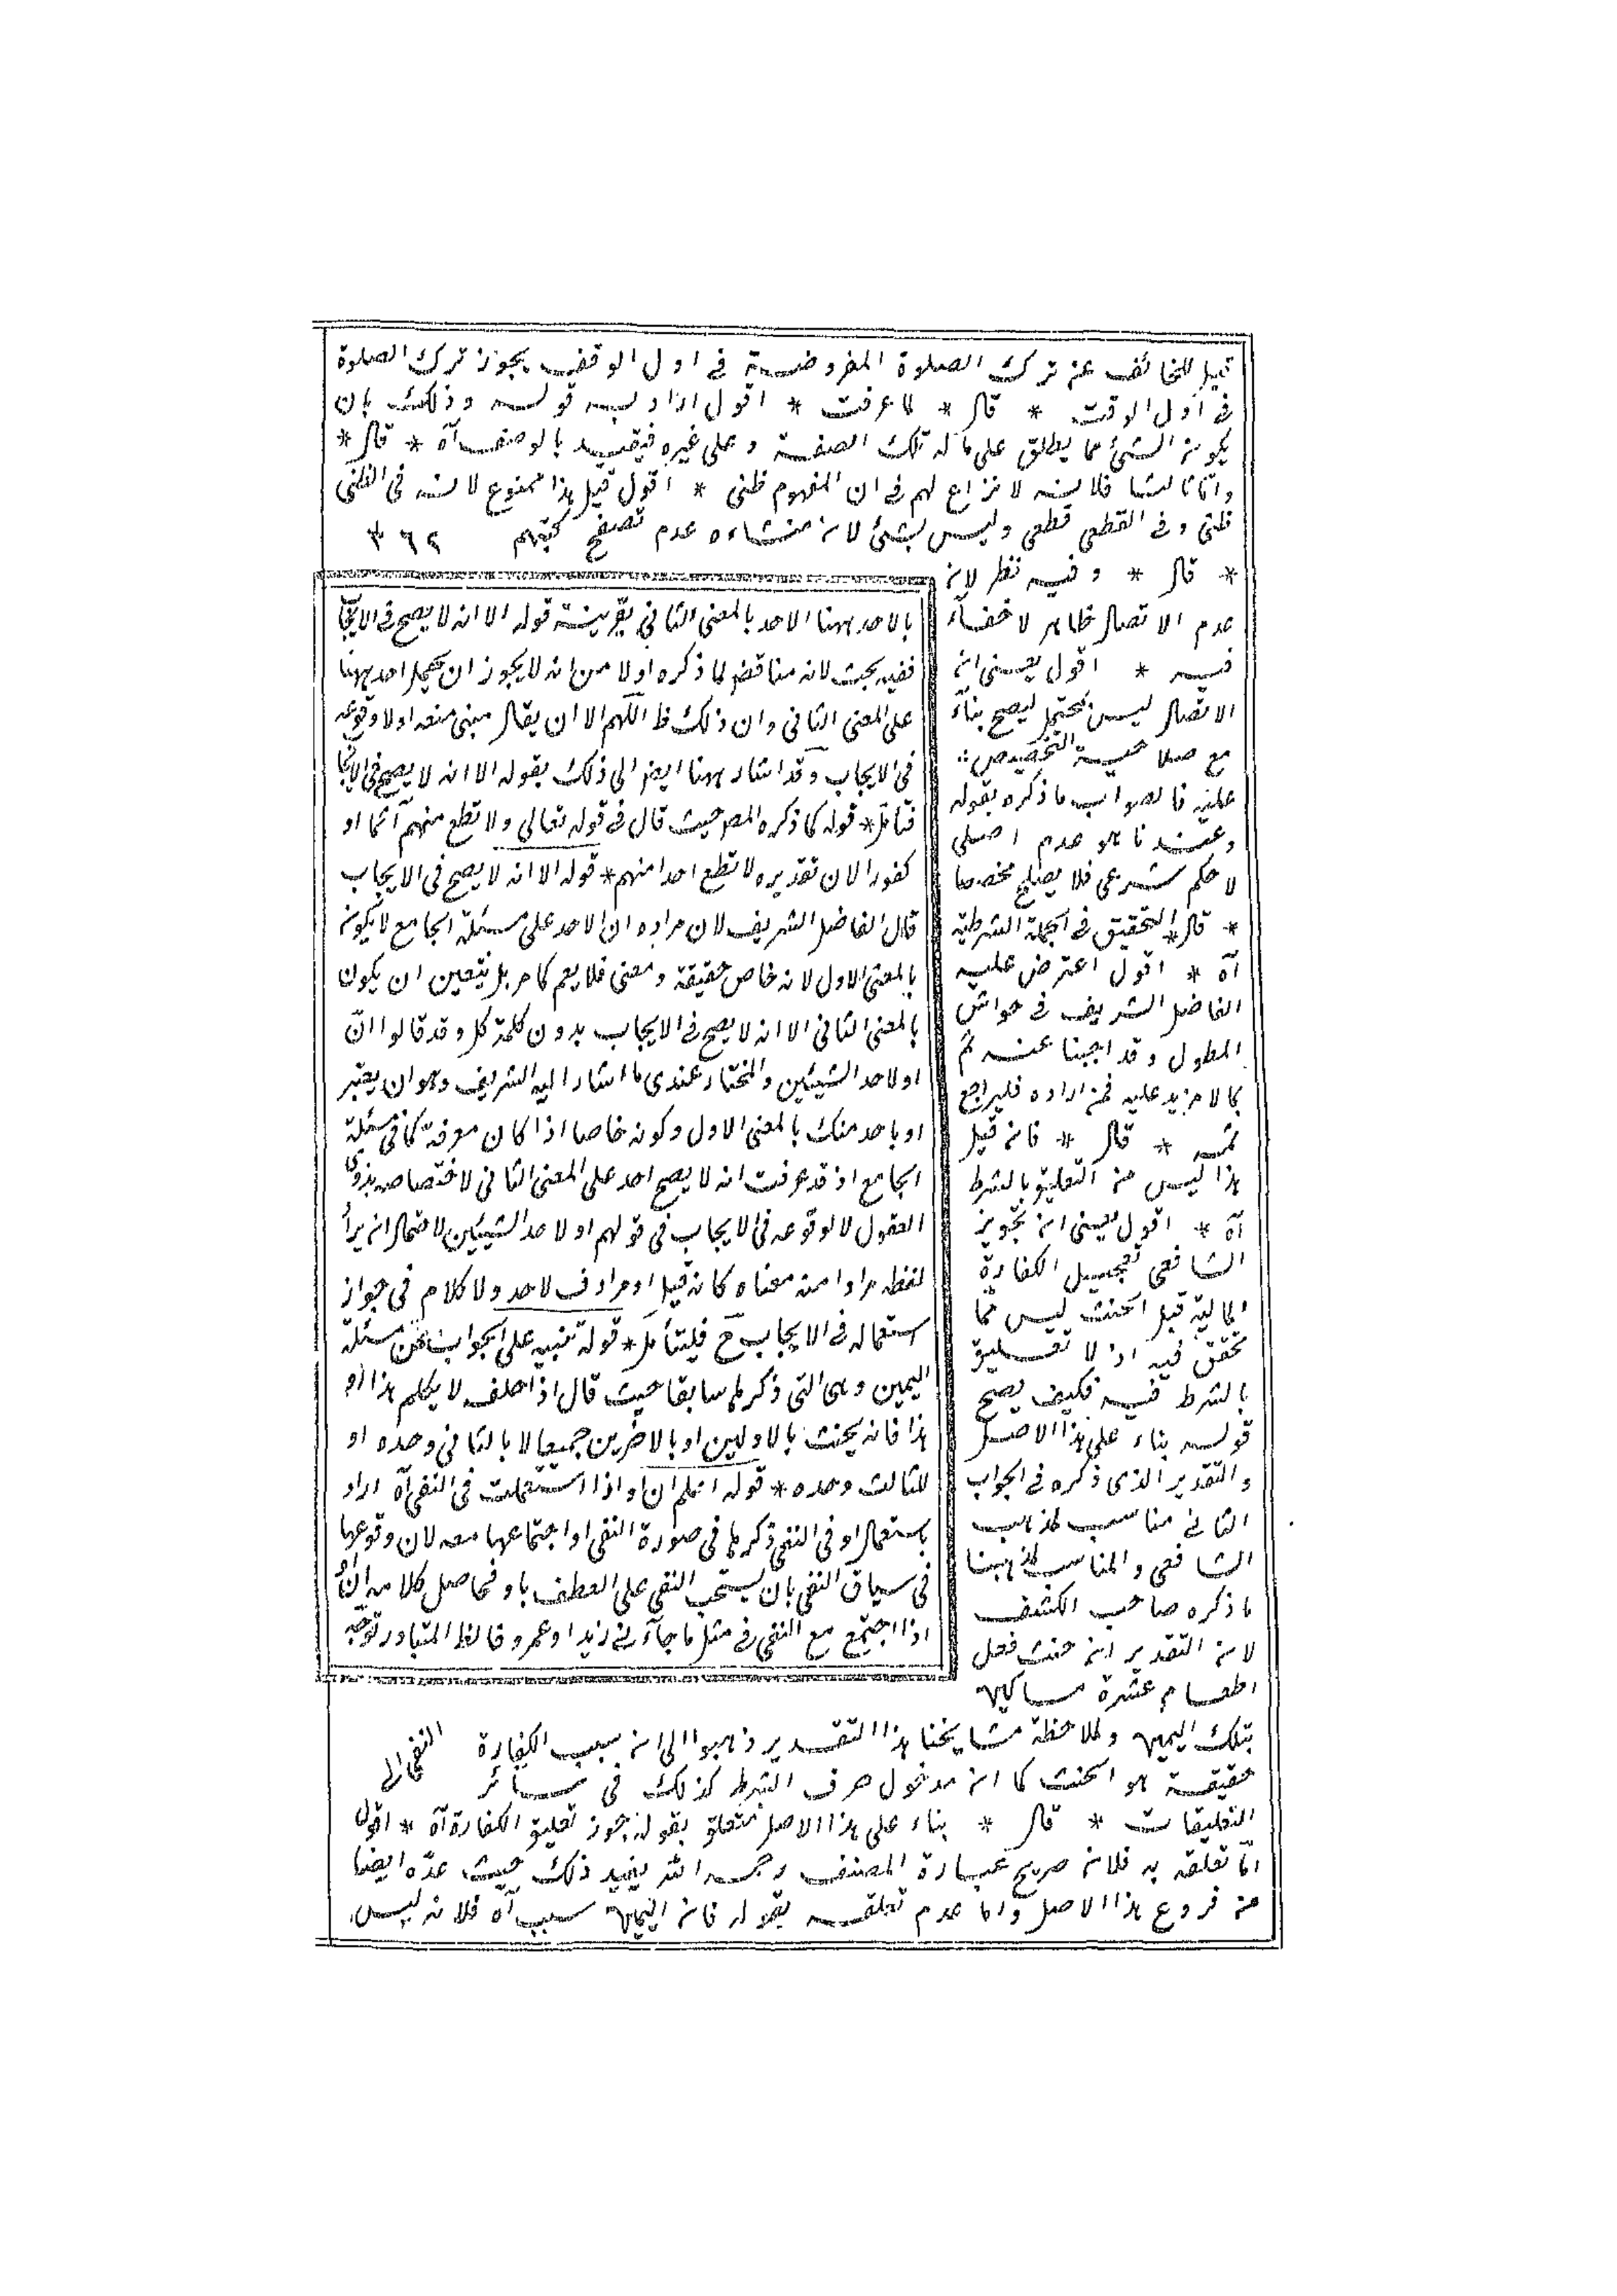 قيل للخائف عن ترك الصلوة المفروضة في اول الوقت يجوز ترك الصلوة
في اول الوقت * قال * لما عرفت * اقول اراد به قوله وذلك بان
يكون الشئ مما يطلق على ما له تلك الصفة وعلى غيره فيقيد بالوصف آه * قال *
واما ثالثا فلانه لا نزاع لهم في ان المفهوم ظني * اقول قيل هذا ممنوع لانه في الظني
ظني وفي القطعي قطعي وليس بشئ لان منشاءه عدم تصفح كتبهم
* قال * وفيه نظر لان
عدم الاتصال ظاهر لا خفآء
فيه * اقول يعني ان
الاتصال ليس بمحتمل ليصح بناء
مع صلاحية التخصيص
عليه فالصواب ما ذكره بقوله
وعندنا هو عدم اصلي
لا حكم شرعي فلا يصلح مخصصا
* قال * التحقيق في الجملة الشرطية
آه * اقول اعترض عليه
الفاضل الشريف في حواشي
المطول وقد اجبنا عنه ثم
بما لا مزيد عليه فمن اراده فليراجع
ثمه * قال * فان قيل
هذا ليس من التعليق بالشرط
آه * اقول يعني ان تجويز
الشافعي تعجيل الكفارة
المالية قبل الحنث ليس مما
نحقق فيه اذ لا تعليق
بالشرط فيه فكيف يصح
قوله بناء على هذا الاصل
والتقدير الذي ذكره في الجواب
الثاني مناسب لمذهب
الشافعي والمناسب لمذهبنا
ما ذكره صاحب الكشف
لان التقدير ان حنث فعل
اطعام عشرة مساكين
بتلك اليمين ولملاحظة مشايخنا هذا التقدير ذهبوا الى ان سبب الكفارة
حقيقة هو الحنث كما ان مدخول حرف الشرط كذلك في سائر
التعليقات * قال * بناء على هذا الاصل متعلق بقوله جوز تعليق الكفارة آه * اقول
اما تعلقه به فلان صريح عبارة المصنف رحمه الله يفيد ذلك حيث عده ايضا
من فروع هذا الاصل واما عدم تعلقه بقوله فان اليمين سبب آه فلانه ليس
بالاحد ههنا الاحد بالمعنى الثاني بقرينة قوله الا انه لا يصح في الايجا
ففيه بحث لانه مناقض لما ذكره اولا من انه لا يجوز ان يحمل احد ههنا
على المعنى الثاني وان ذلك ظ اللهم الا ان يقال مبنى منعه اولا وقوعه
في الايجاب وقد اشار ههنا ايضا الى ذلك بقوله الا انه لا يصح في الايجا
فتأمل * قوله كما ذكره المص حيث قال في قوله تعالى ولا تطع منهم آثما او
كفورا لان تقديره لا تطع احدا منهم * قوله الا انه لا يصح في الايجاب
قال الفاضل الشريف لان مراده ان الاحد على مسئلة الجامع لا يكون
بالمعنى الاول لانه خاص حقيقة ومعنى فلا يعم كما مر بل يتعين ان يكون
بالمعنى الثاني الا انه لا يصح في الايجاب بدون كلمة كل وقد قالوا ان
او لاحد الشيئين والمختار عندي ما اشار اليه الشريف وهو ان يعتبر
او باحد منك بالمعنى الاول وكونه خاصا اذا كان معرفة كما في مسئلة
الجامع اذ قد عرفت انه لا يصح احد على المعنى الثاني لاختصاصه بذوي
العقول لا لوقوعه في الايجاب في قولهم او لاحد الشيئين لاحتمال ان يراد
لفظه مرادا منه معناه كانه قيل او مرادف لاحد ولا كلام في جواز
استعماله في الايجاب ح فليتأمل * قوله تنبيه على الجواب عن مسئلة
اليمين وهي التي ذكرها سابقا حيث قال اذا حلف لا يكلم هذا او
هذا فانه يحنث بالاولين او بالاخرين جميعا لا بالثاني وحده او
للثالث وحده * قوله اعلم ان او اذا استعملت في النفي آه اراد
باستعمال او في النفي ذكرها في صورة النفي واجتماعها معه لان وقوعها
في سياق النفي بان يستحب النفي على العطف باو فحاصل كلامه انه
اذا اجتمع مع النفي في مثل ما جآءني زيد او عمرو فالظ المتبادر توجه
النفي الى